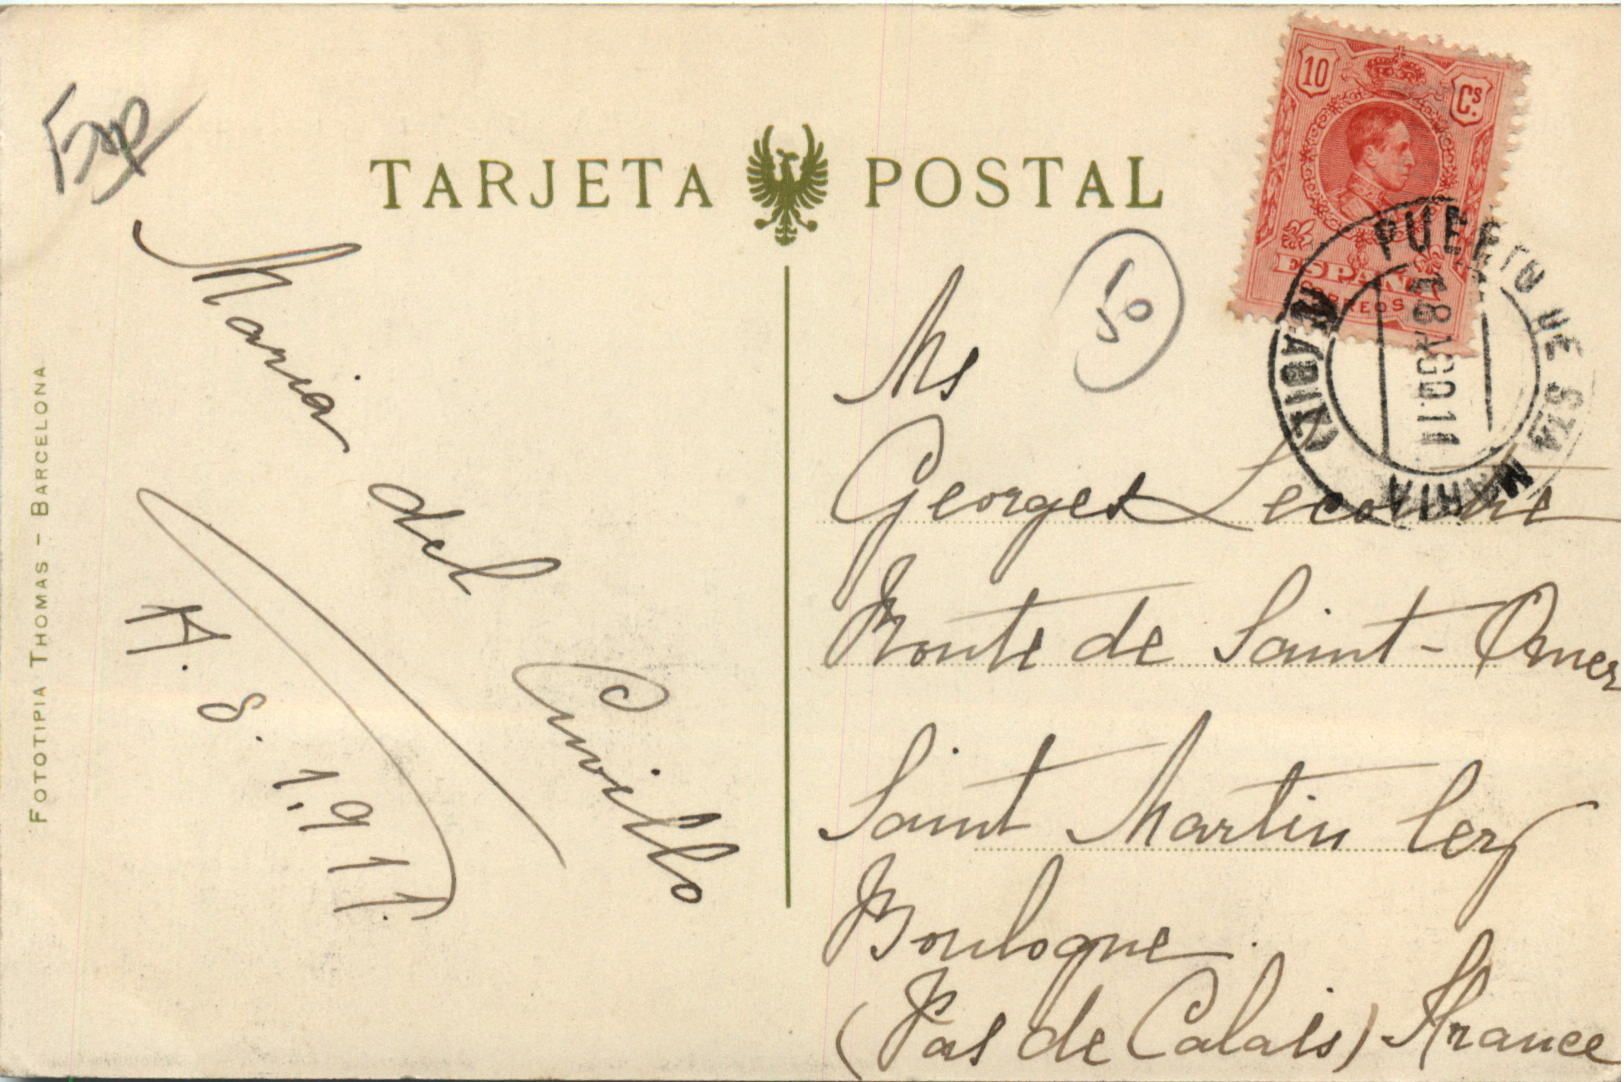 TARJETA POSTAL
10 Cs.
ESPAÑA
CORREOS
PUERTO DE STA MARIA
(CADIZ)
18 AGO. 11
50
Maria del Cuvillo
17. 8. 1.911.
Ms
Georges Lecomte
Route de Saint-Omer
Saint Martin lez
Boulogne
(Pas de Calais) France
FOTOTIPIA THOMAS - BARCELONA